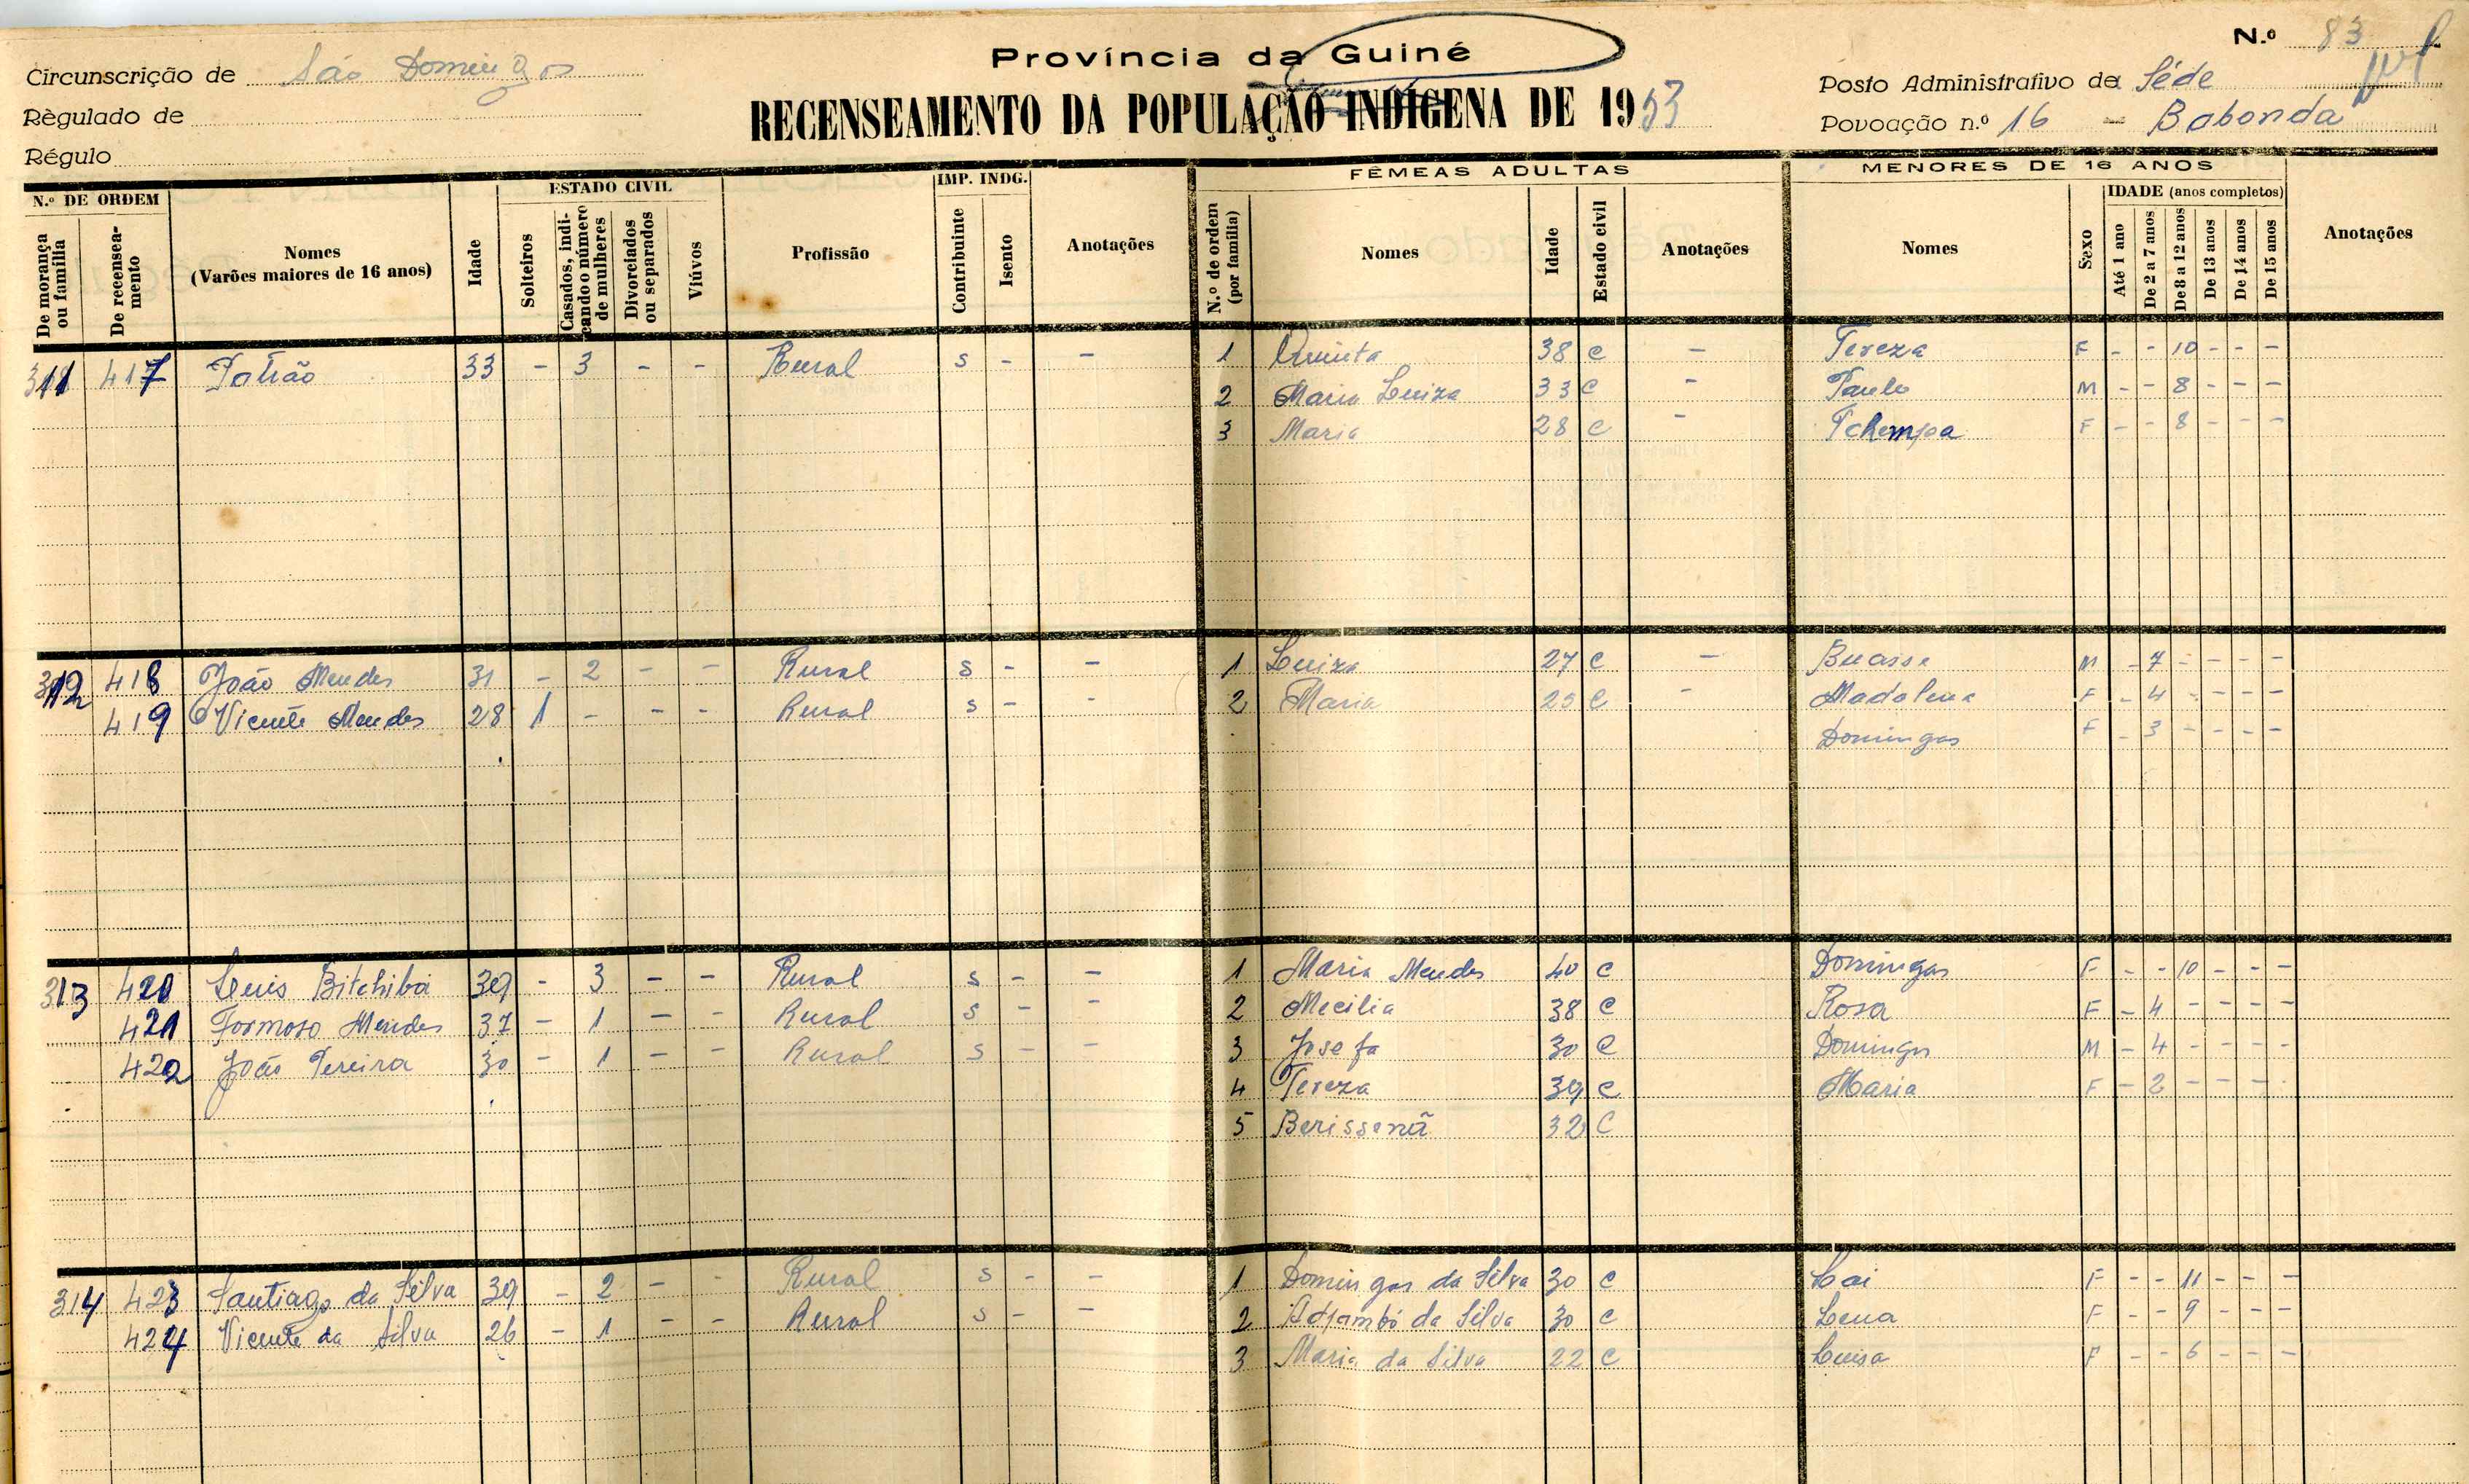 Província da Guiné
N.º 83
Circunscrição de São Domingos
Posto Administrativo da Séde
RECENSEAMENTO DA POPULAÇÃO INDÍGENA DE 1953
Règulado de
Povoação n.º 16 - Babonda
Régulo
N.º DE ORDEM
De morança ou família
De recenseamento
Nomes
(Varões maiores de 16 anos)
Idade
ESTADO CIVIL
Solteiros
Casados, indicando o número de mulheres
Divorciados ou separados
Viúvos
Profissão
IMP. INDG.
Contribuinte
Isento
Anotações
FÊMEAS ADULTAS
N.º de ordem (por família)
Nomes
Idade
Estado civil
Anotações
MENORES DE 16 ANOS
Nomes
Sexo
IDADE (anos completos)
Até 1 ano
De 2 a 7 anos
De 8 a 12 anos
De 13 anos
De 14 anos
De 15 anos
Anotações
311 417 Patrão 33 - 3 - - Rural s - - 1 38 c - Tereza F - - 10 - - -
2 Maria Luiza 33 c - Paulo M - - 8 - - -
3 Maria 28 c - Tchempa F - - 8 - - -
312 418 João Mendes 31 - 2 - - Rural s - - 1 Luiza 27 c - Buasse M - 7 - - - -
419 Vicente Mendes 28 1 - - - Rural s - - 2 Maria 25 c - Madalena F - 4 - - - -
Domingas F - 3 - - - -
313 420 Luis Bitchiba 39 - 3 - - Rural s - - 1 Maria Mendes 40 c Domingas F - - 10 - - -
421 Formoso Mendes 37 - 1 - - Rural s - - 2 Mecilia 38 c Rosa F - 4 - - - -
422 João Pereira 30 - 1 - - Rural s - - 3 Josefa 30 c Domingos M - 4 - - - -
4 Tereza 39 c Maria F - 2 - - - -
5 Berissenã 32 c
314 423 Santiago da Silva 39 - 2 - - Rural s - - 1 Domingas da Silva 30 c Cai F - - 11 - - -
424 Vicente da Silva 26 - 1 - - Rural s - - 2 Adjambó da Silva 30 c Lena F - - 9 - - -
3 Maria da Silva 22 c Luisa F - - 6 - - -